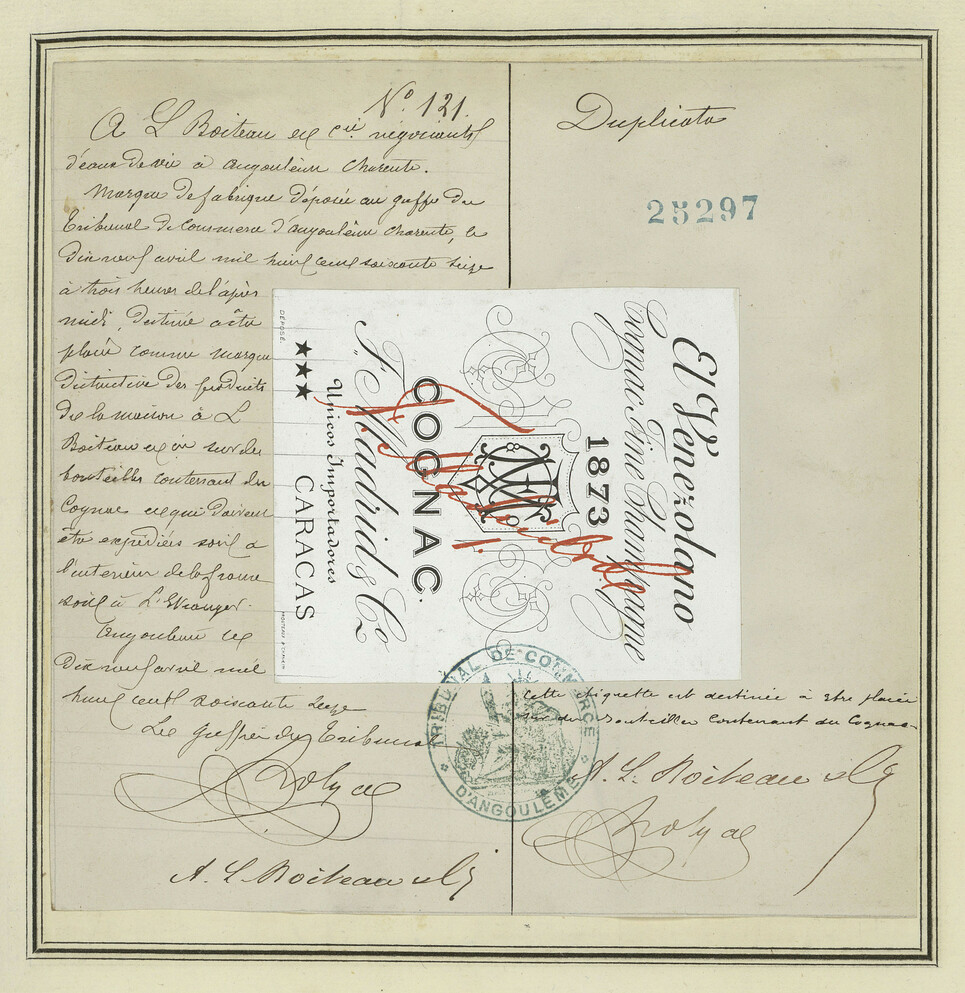 No. 121.
A L Boiteau et cie négociants
d'eaux de vie à angoulême Charente.
Marque de fabrique déposée au greffe du
Tribunal de Commerce d'angoulême Charente, le
Dix neuf avril mil huit cent soixante seize
à trois heures de l'après
midi, destinée à être
placée comme marque
distinctive des produits
de la maison A L
Boiteau et cie sur des
bouteilles contenant du
Cognac et qui doivent
être expédiées soit à
l'interieur de la france
soit à L'Etranger.
Angoulême le
Dix neuf avril mil
huit cent soixante seize
Le greffier du Tribunal
A. L. Boiteau & Cie
Duplicata
25297
El Venezolano
Cognac Fine Champagne
1873
COGNAC.
F. Madrid & Co
Unicos Importadores
★★★ CARACAS
DÉPOSÉ.
TRIBUNAL DE COMMERCE
D'ANGOULÊME
Cette étiquette est destinée à être placée
sur des Bouteilles contenant du Cognac
A. L. Boiteau & Cie